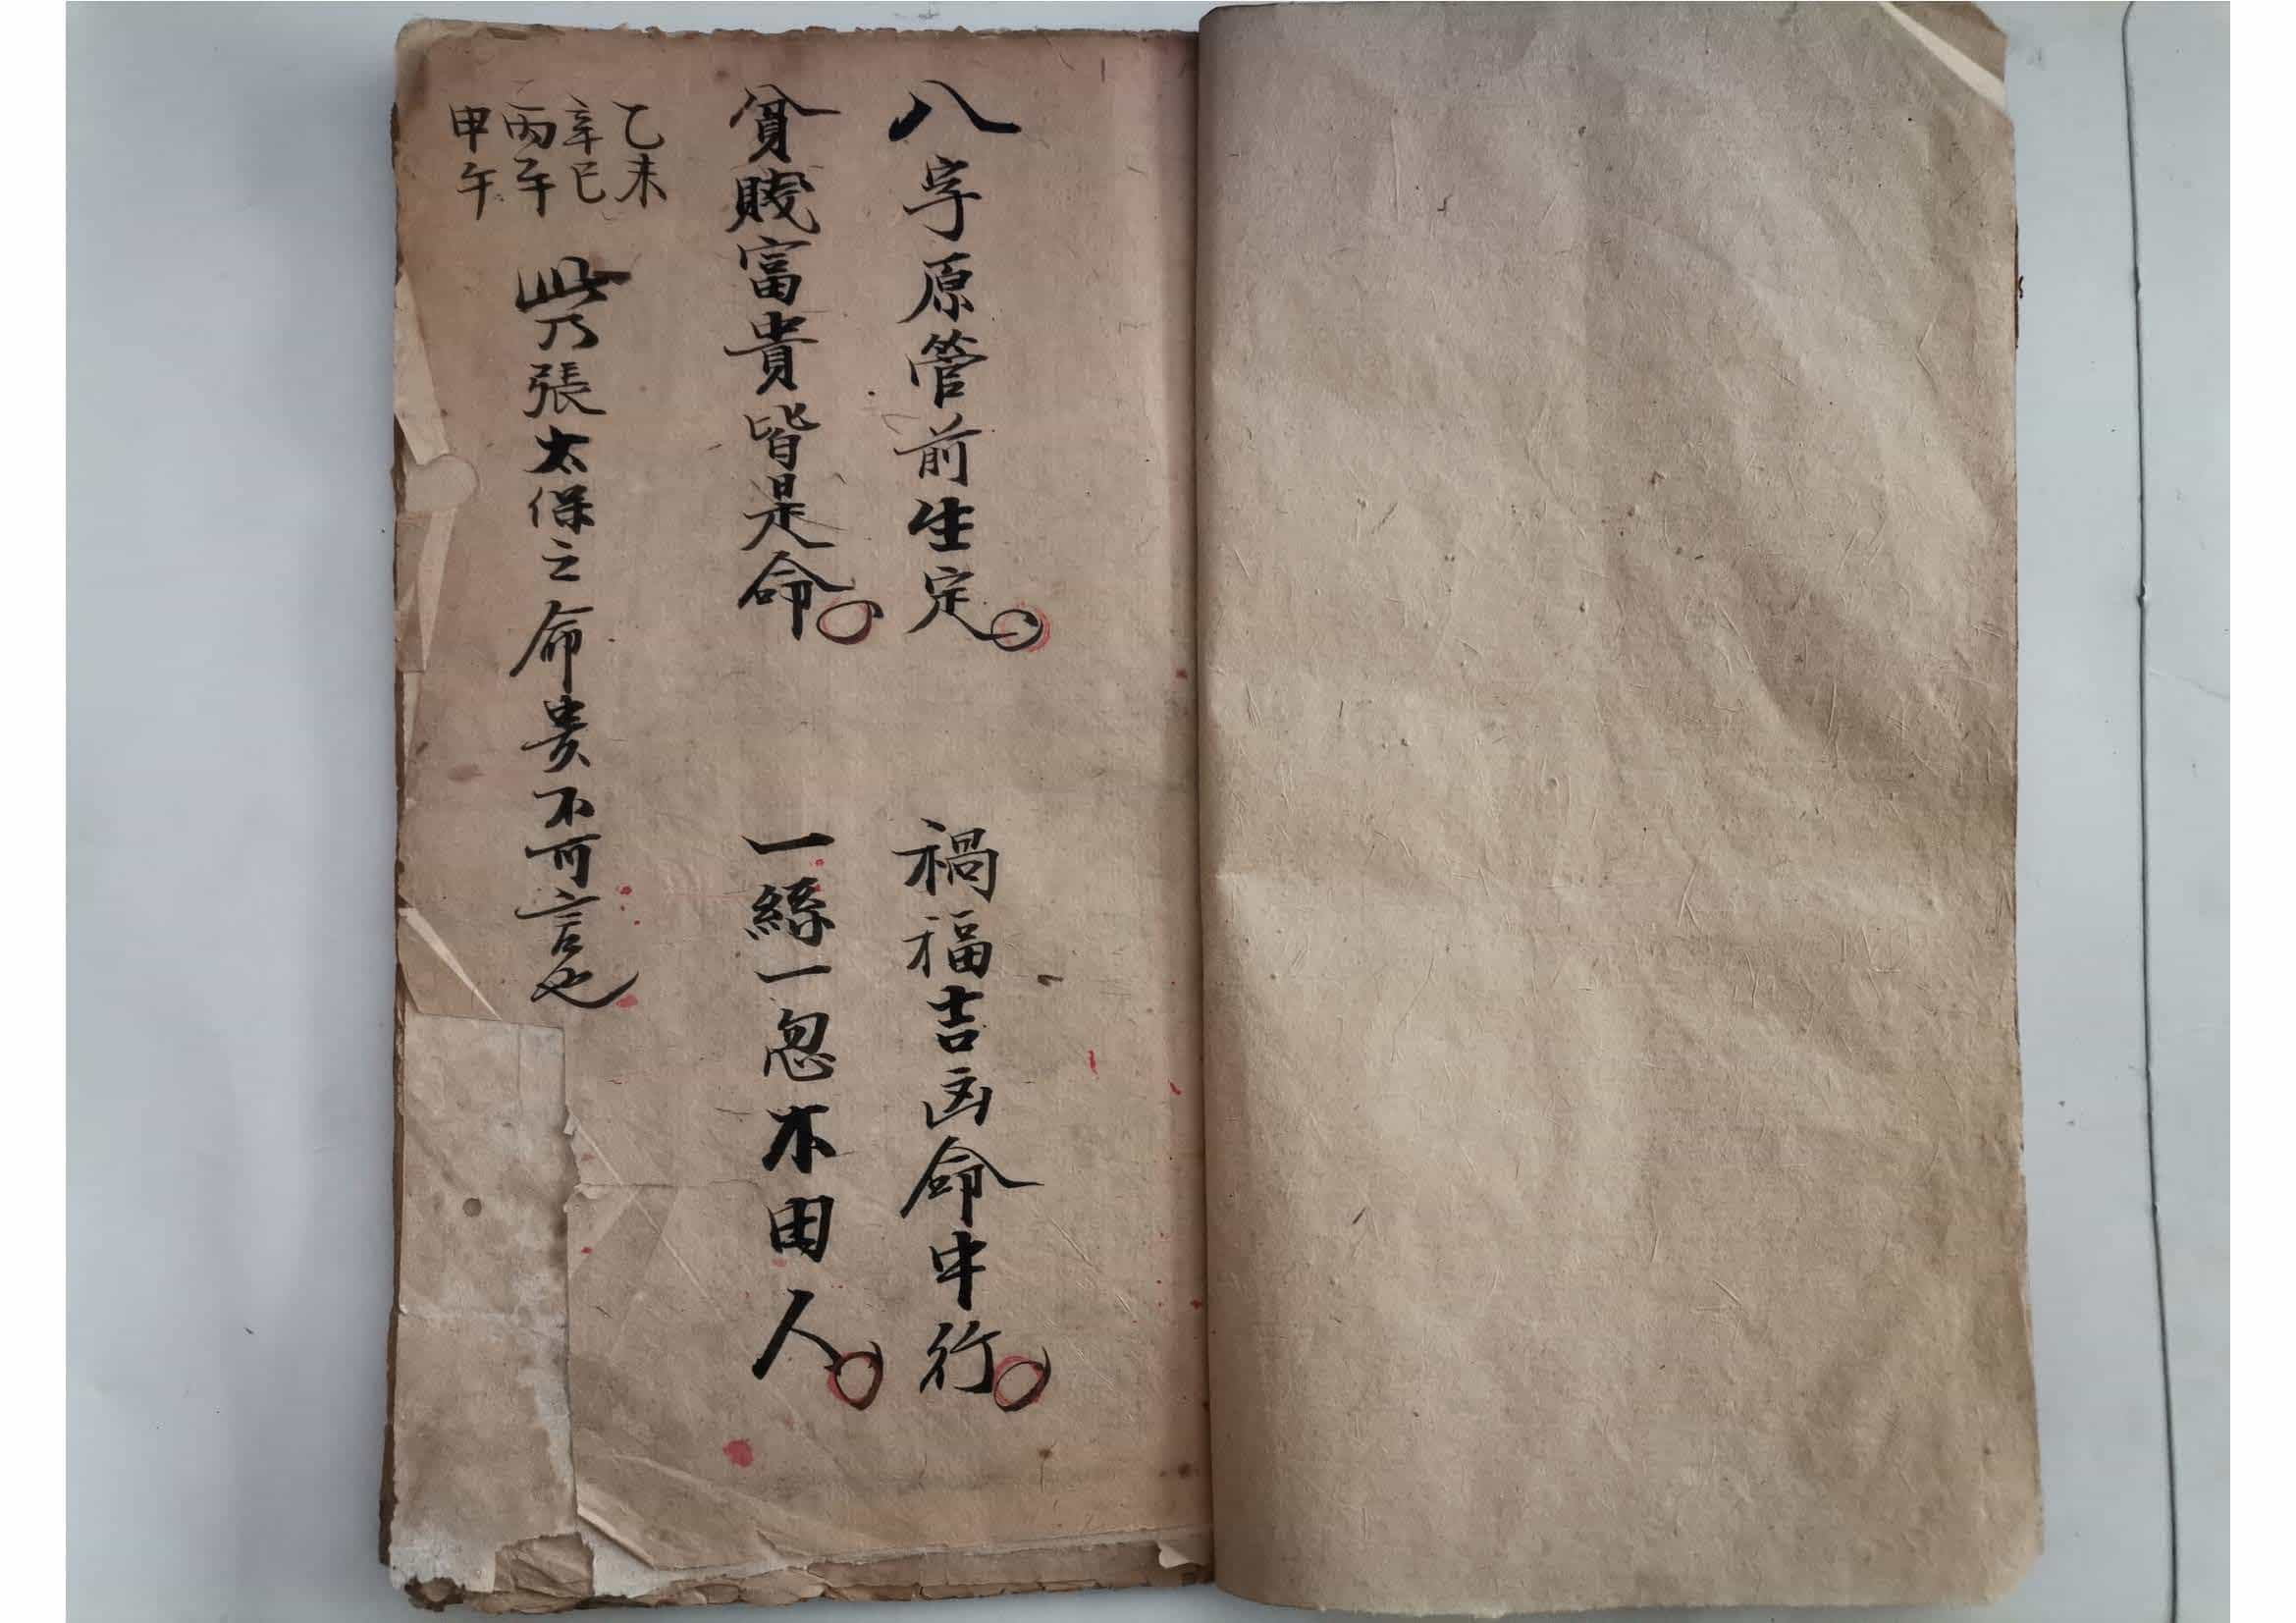 八字原管前生定。 禍福吉凶命中行。
貧賤富貴皆是命。 一絲一忽不由人。
乙未
辛巳
丙午
甲午
此乃張太保之命貴不可言也